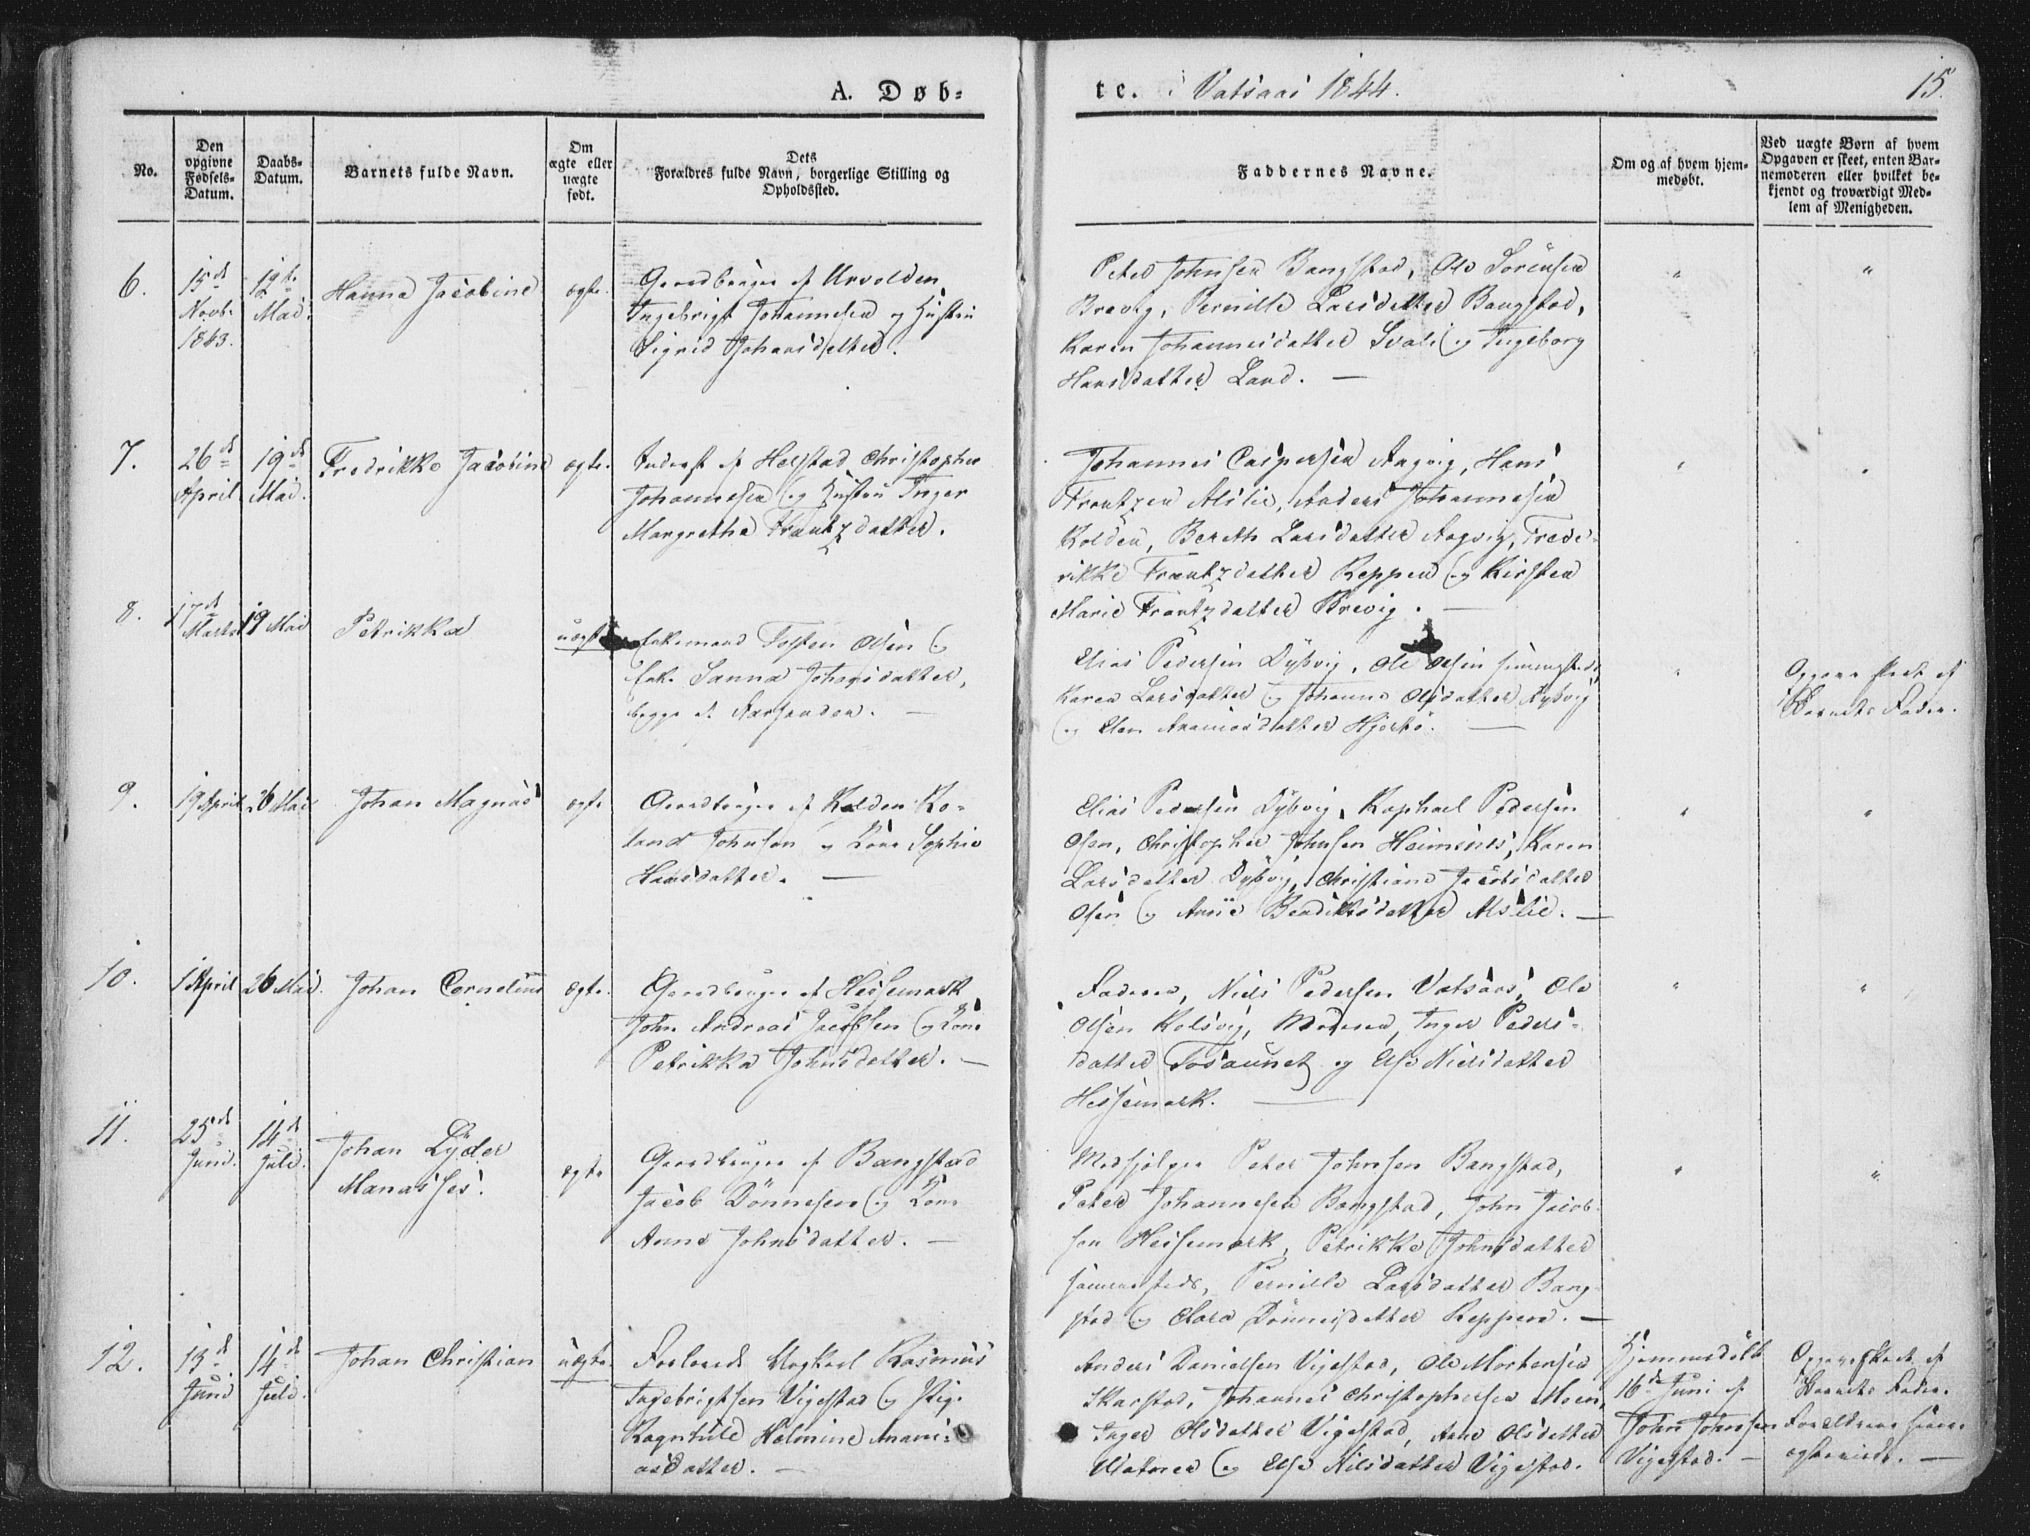 A. Døb-
te. i Vatsaas 1844. 15.
No.
Den opgivne Fødsels-Datum.
Daabs-Datum.
Barnets fulde Navn.
Om ægte eller uægte født.
Dets Forældres fulde Navn, borgerlige Stilling og Opholdssted.
Faddernes Navne.
Om og af hvem hjem-
medøbt.
Ved uægte Børn af hvem
Opgaven er skeet, enten Bar-
nemoderen eller hvilket be-
kjendt og troværdigt Med-
lem af Menigheden.
6.
15de Novb. 1843.
19de Mai.
Hanna Jacobine
ægte.
Gaardbruger af Urvolden
Ingebrigt Johannesen og Hustru
Sigrid Johansdatter.
Peter Johnsen Bangstad, Ole Sørensen
Brevig, Pernille Larsdatter Bangstad,
Karen Johannesdatter Svali og Ingeborg
Hansdatter Land. —
"
"
7.
26de April
19de Mai.
Fredrikke Jacobine
ægte.
Inderst af Helstad Christopher
Johannesen og Hustru Inger
Margrethe Frantzdatter.
Johannes Caspersen Aagvig, Hans
Frantzen Alslie, Anders Johannesen
Kolden, Bereth Larsdatter Aagvig, Frede-
rikke Frantzdatter Reppen og Kirsten
Marie Frantzdatter Brevig. —
"
"
8.
17de Marts
19 Mai
Petrikka
uægte
Enkemand Tosten Olsen og
Enke Sanna Johansdatter,
begge af Aarsanden. —
Elias Pedersen Dybvig, Ole Olsen sammesteds,
Karen Larsdatter og Johanna Olsdatter Dybvig
og Elen Ananiasdatter Hjortø. —
"
Opgave skeet af
Barnets Fader.
9.
19 April
26 Mai
Johan Magnus
ægte
Gaardbruger af Kolden Ro-
land Johnsen og Kone Sophie
Hansdatter. —
Elias Pedersen Dybvig, Raphael Pedersen
Osen, Christopher Johnsen Heimsnes, Karen
Larsdatter Dybvig, Christiane Jacobsdatter
Osen og Ansie Bendiksdatter Alslie. —
"
"
10.
1 April
26 Mai.
Johan Cornelius
ægte.
Gaardbruger af Heisemark
John Andreas Jacobsen og Kone
Petrikka Johnsdatter. —
Faderen, Niels Pedersen Vatsaas, Ole
Olsen Kolsvig, Moderen, Inger Peders-
datter Tosaunet og Else Nielsdatter
Heisemark. —
"
"
11.
25de Juni.
14de Juli.
Johan Lyder
Manasses.
ægte
Gaardbruger af Bangstad
Jacob Dønnesen og Kone
Anne Johnsdatter. —
Medhjelper Peter Johnsen Bangstad,
Peter Johannesen Bangstad, John Jacob-
sen Heisemark, Petrikke Johnsdatter
sammesteds, Pernille Larsdatter Bang-
stad og Clara Dønnesdatter Reppen. —
"
"
12.
13de Juni
14de Juli.
Johan Christian
uægte.
Forlovede Ungkarl Rasmus
Ingebrigtsen Vigestad og Pige
Ragnhild Halmine Anani-
asdatter. —
Anders Danielsen Vigestad, Ole Mortensen
Skarstad, Johannes Christophersen Moen,
Inger Olsdatter Vigestad, Ane Olsdatter
og Else Nilsdatter Vigestad.
Hjemmedøbt
16de Juni af
John Johnsen
Vigestad. —
Opgave skeet af
Barnets Fader.
Forældrene siden
—